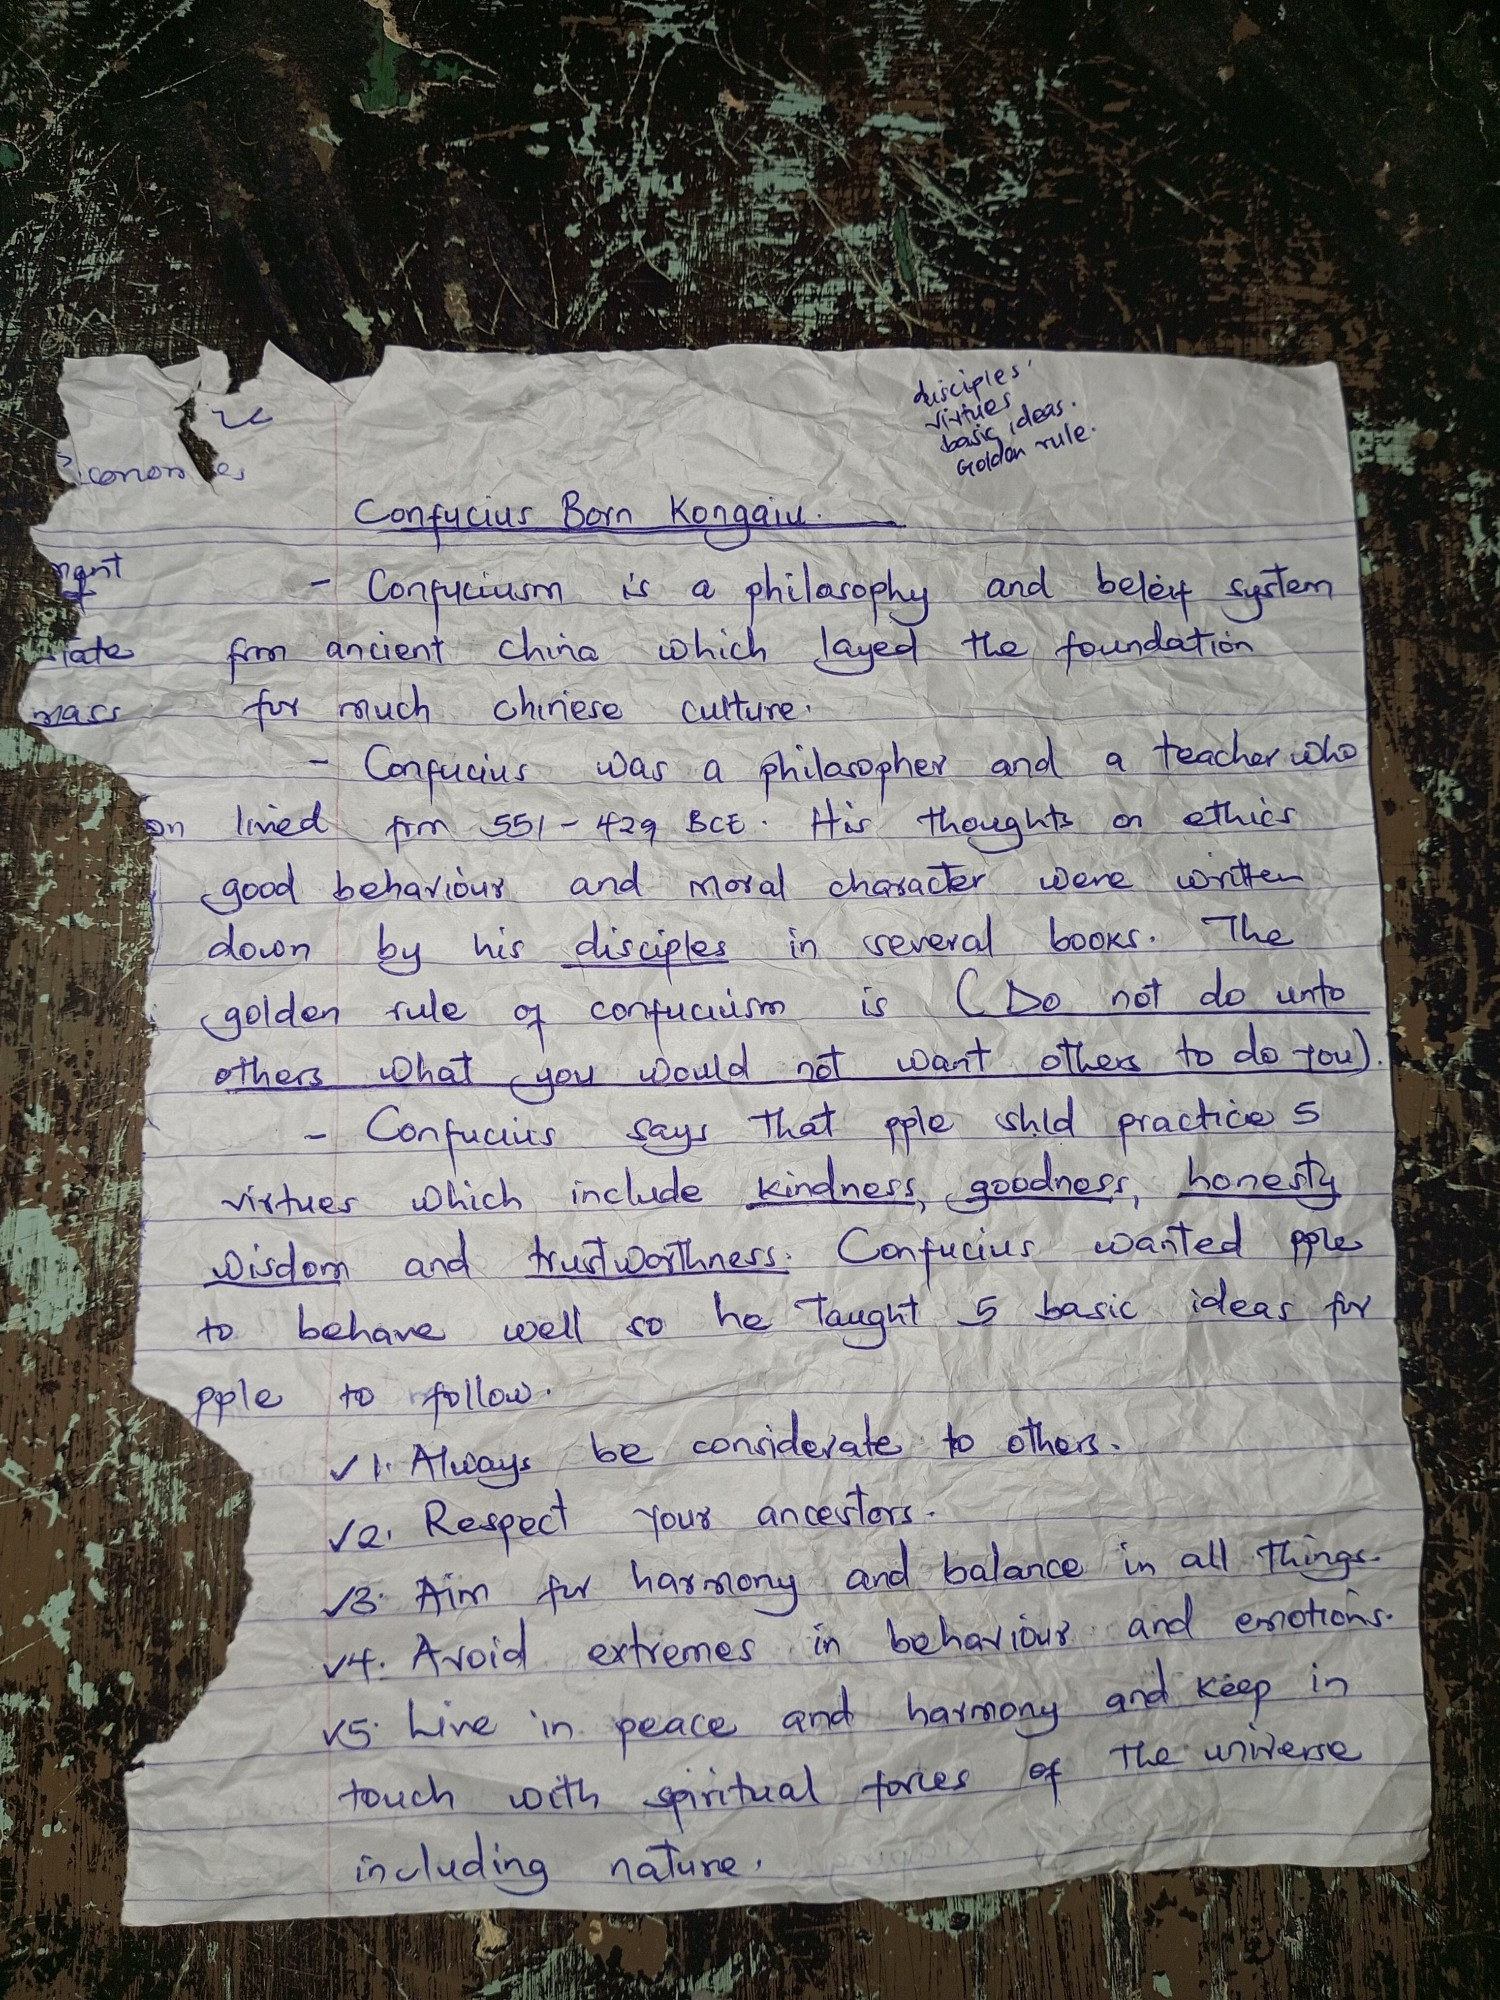 disciples
virtues
basic ideas.
Golden rule.
Confucius Born Kongaiu.
- Confuciusm is a philosophy and beleif system
from ancient china which layed the foundation
mass for much chinese culture.
- Confucius was a philosopher and a teacher who
on lived from 551-429 BCE. His thoughts on ethics
good behaviour and moral character were written
down by his disciples in several books. The
golden rule of confucuism is (Do not do unto
others what you would not want others to do you).
- Confucius says that pple shld practice 5
virtues which include kindness, goodness, honesty
wisdom and trustworthness. Confucius wanted pple
to behave well so he taught 5 basic ideas for
pple to follow.
✓1. Always be considerate to others.
✓2. Respect your ancestors.
✓3. Aim for harmony and balance in all things.
✓4. Avoid extremes in behaviour and emotions.
✓5. Live in peace and harmony and keep in
touch with spiritual forces of the universe
including nature.